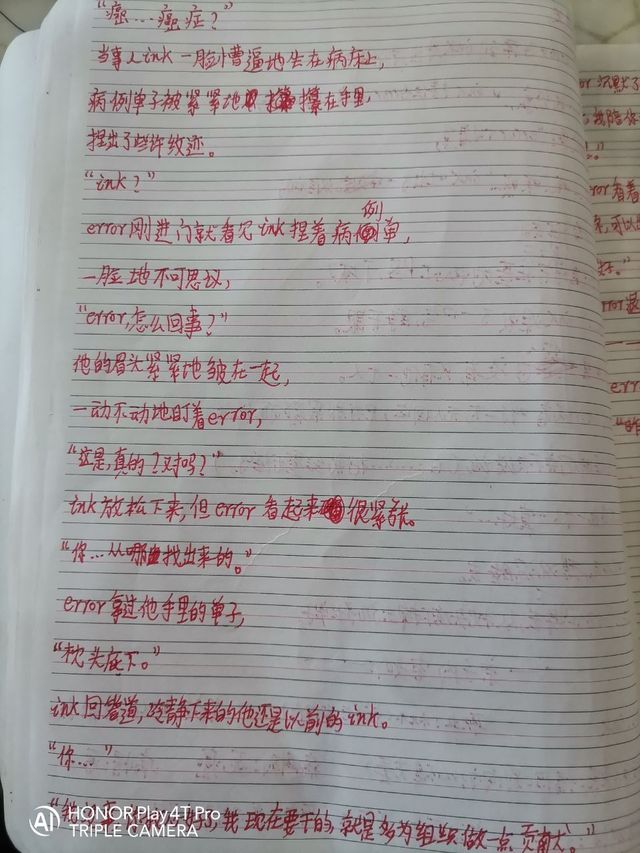 “癌…癌症？”
当事人ink一脸懵逼地坐在病床上,
病例单子被紧紧地攥在手里,
捏出了些许纹迹。
“ink？”
error刚进门就看见ink捏着病例单,
一脸地不可思议,
“error,怎么回事？”
他的眉头紧紧地皱在一起,
一动不动地盯着error,
“这是,真的？对吗？”
ink放松下来,但error看起来很紧张。
“你…从哪找出来的。”
error拿过他手里的单子,
“枕头底下。”
ink回答道,冷静下来的他还是以前的ink。
“你…”
我现在要干的,就是多为组织做一点贡献。”
or沉默了
我陪你
。”
ror看着
来,可以
。”
rror
err
“昨
AI HONOR Play4T Pro
TRIPLE CAMERA